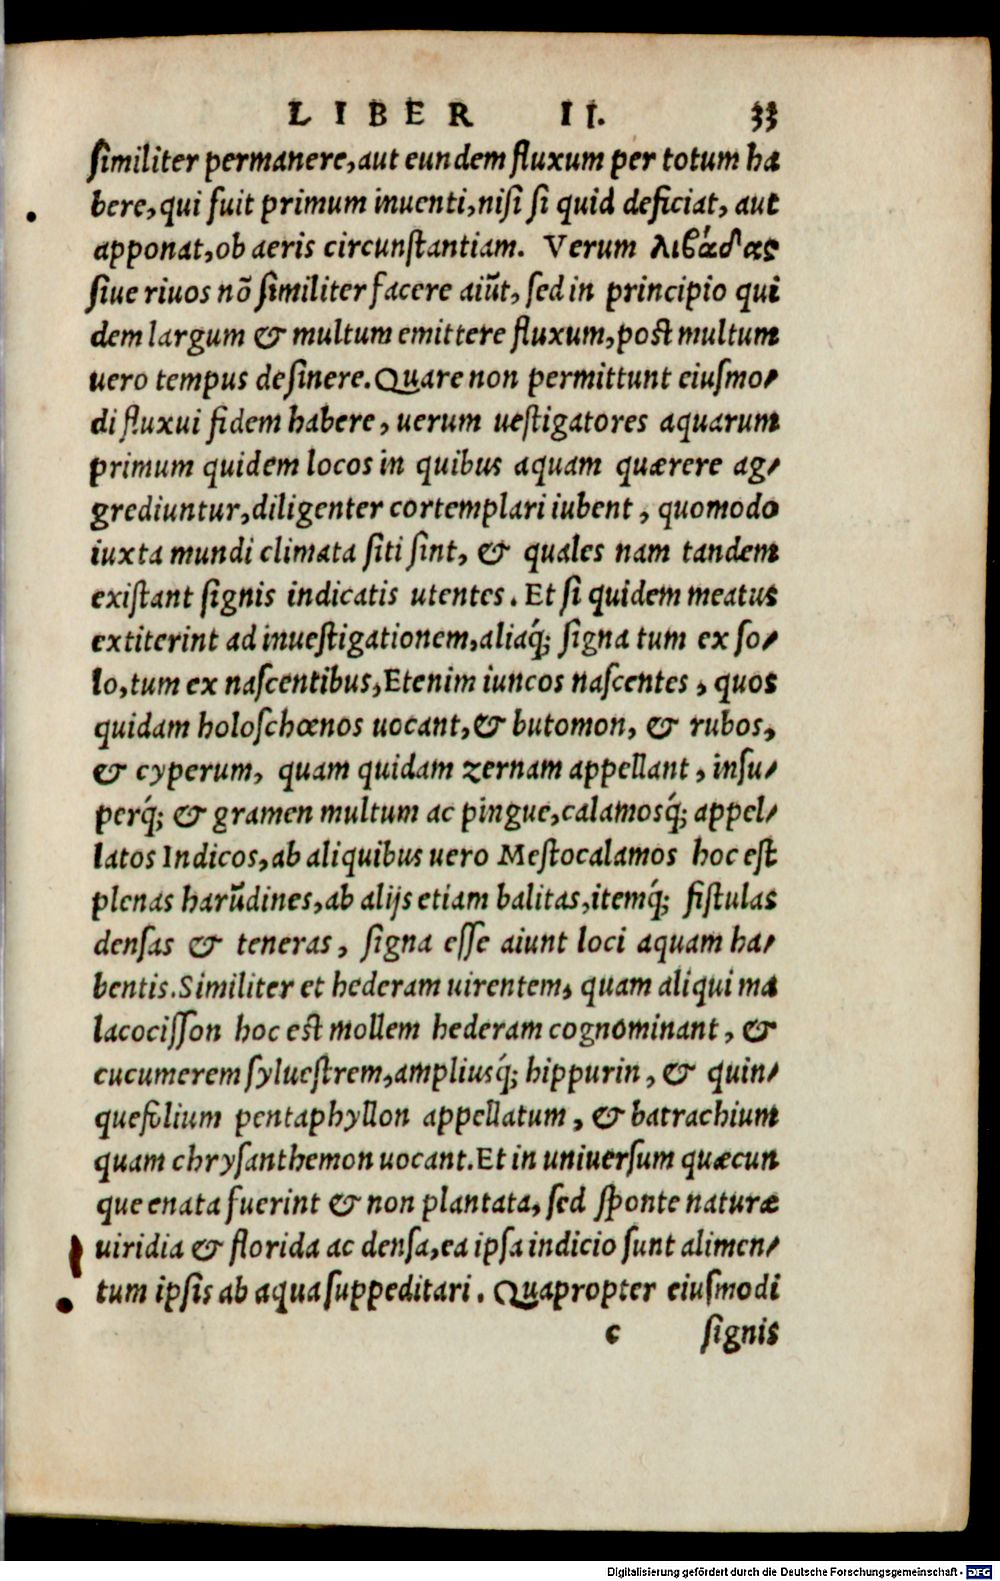 LIBER II. 33
similiter permanere, aut eundem fluxum per totum ha
bere, qui fuit primum inuenti, nisi si quid deficiat, aut
apponat, ob aeris circunstantiam. Verum λιβάδας
siue riuos nõ similiter facere aiũt, sed in principio qui
dem largum & multum emittere fluxum, post multum
uero tempus desinere. Quare non permittunt eiusmo-
di fluxui fidem habere, uerum uestigatores aquarum
primum quidem locos in quibus aquam quærere ag-
grediuntur, diligenter cortemplari iubent, quomodo
iuxta mundi climata siti sint, & quales nam tandem
existant signis indicatis utentes. Et si quidem meatus
extiterint ad inuestigationem, aliaq́; signa tum ex so-
lo, tum ex nascentibus, Etenim iuncos nascentes, quos
quidam holoschœnos uocant, & butomon, & rubos,
& cyperum, quam quidam zernam appellant, insu-
perq́; & gramen multum ac pingue, calamosq́; appel-
latos Indicos, ab aliquibus uero Mestocalamos hoc est
plenas harũdines, ab alijs etiam balitas, itemq́; fistulas
densas & teneras, signa esse aiunt loci aquam ha-
bentis. Similiter et hederam uirentem, quam aliqui ma
lacocisson hoc est mollem hederam cognominant, &
cucumerem syluestrem, ampliusq́; hippurin, & quin-
quefolium pentaphyllon appellatum, & batrachium
quam chrysanthemon uocant. Et in uniuersum quæcun
que enata fuerint & non plantata, sed sponte naturæ
uiridia & florida ac densa, ea ipsa indicio sunt alimen-
tum ipsis ab aqua suppeditari. Quapropter eiusmodi
c signis
Digitalisierung gefördert durch die Deutsche Forschungsgemeinschaft - DFG